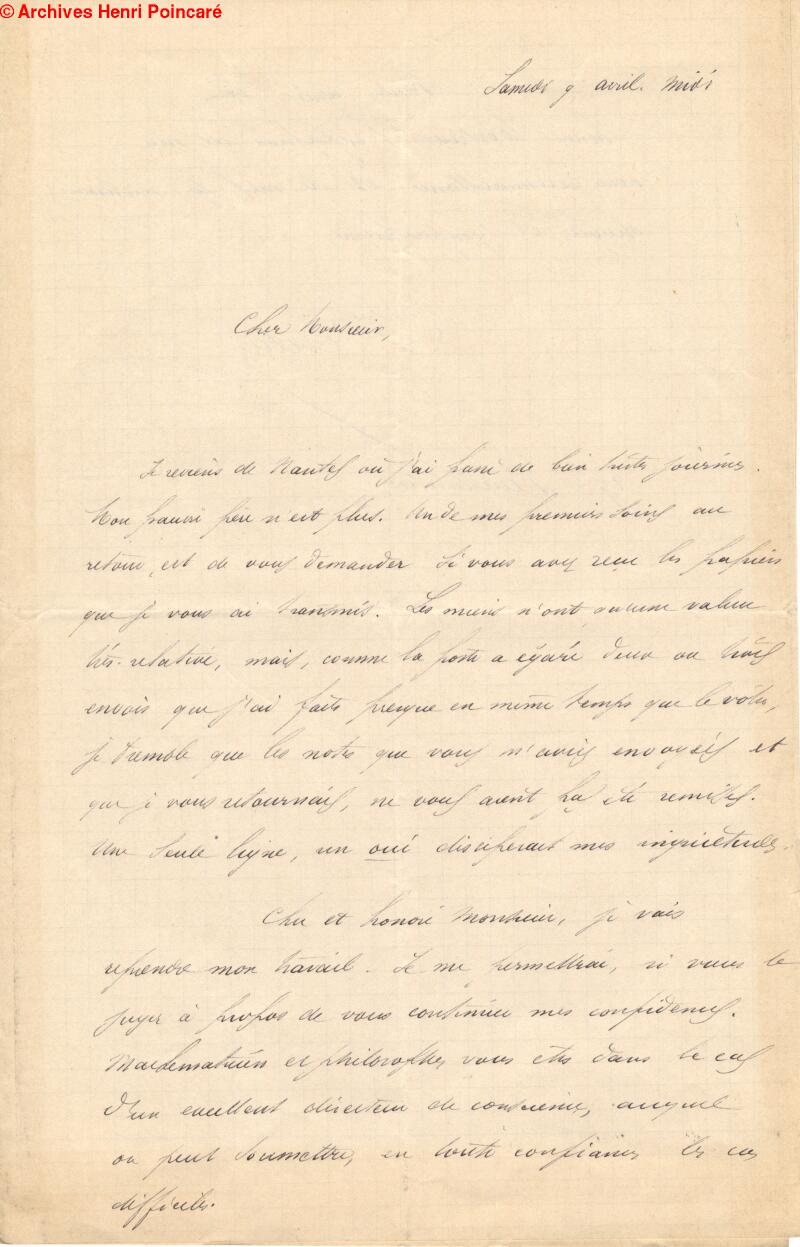 © Archives Henri Poincaré
Samedi 9 avril. Midi
Cher Monsieur,
Je reviens de Nantes où j'ai passé de bien tristes journées.
Mon pauvre père n'est plus. Un de mes premiers soins au
retour, est de vous demander si vous avez reçu les papiers
que je vous ai transmis. Les miens n'ont qu'une valeur
très-relative, mais, comme la poste a égaré deux ou trois
envois que j'ai faits presque en même temps que le vôtre,
je tremble que les notes que vous m'aviez envoyées et
que je vous retournais, ne vous aient pas été remises.
Une seule ligne, un oui dissiperait mes inquiétudes.
Cher et honoré Monsieur, je vais
reprendre mon travail. Je me permettrai, si vous le
jugez à propos de vous continuer mes confidences.
Mathématicien et philosophe, vous êtes dans le cas
d'un excellent directeur de conscience, auquel
on peut soumettre, en toute confiance les cas
difficiles.